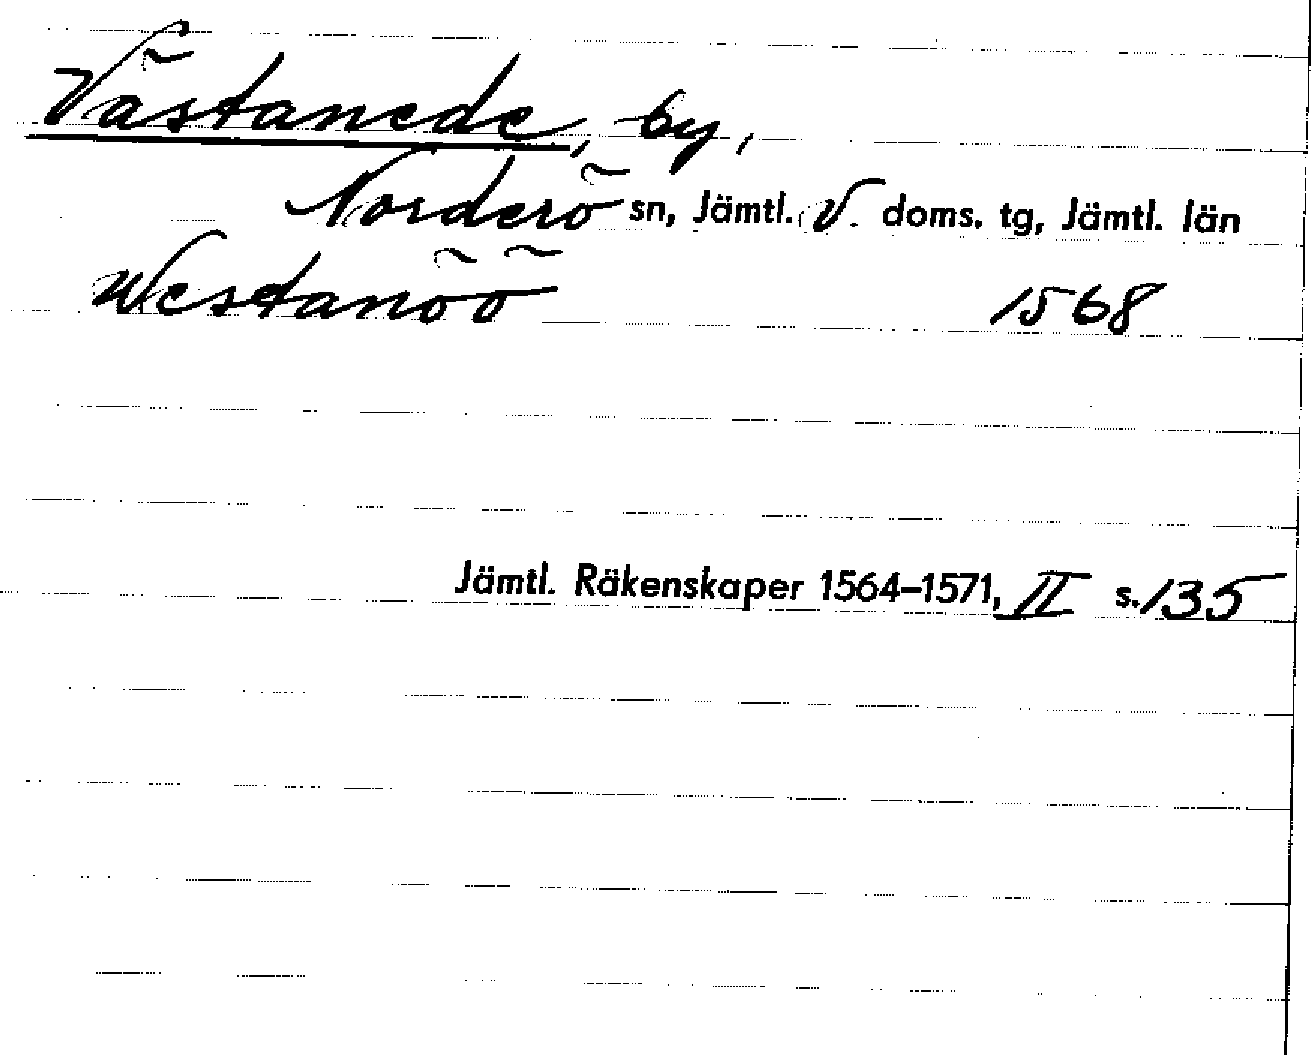 Västanede, by,
Norderö sn, Jämtl. V. doms. tg, Jämtl. län
Westanöö 1568
Jämtl. Räkenskaper 1564–1571, II s. 135